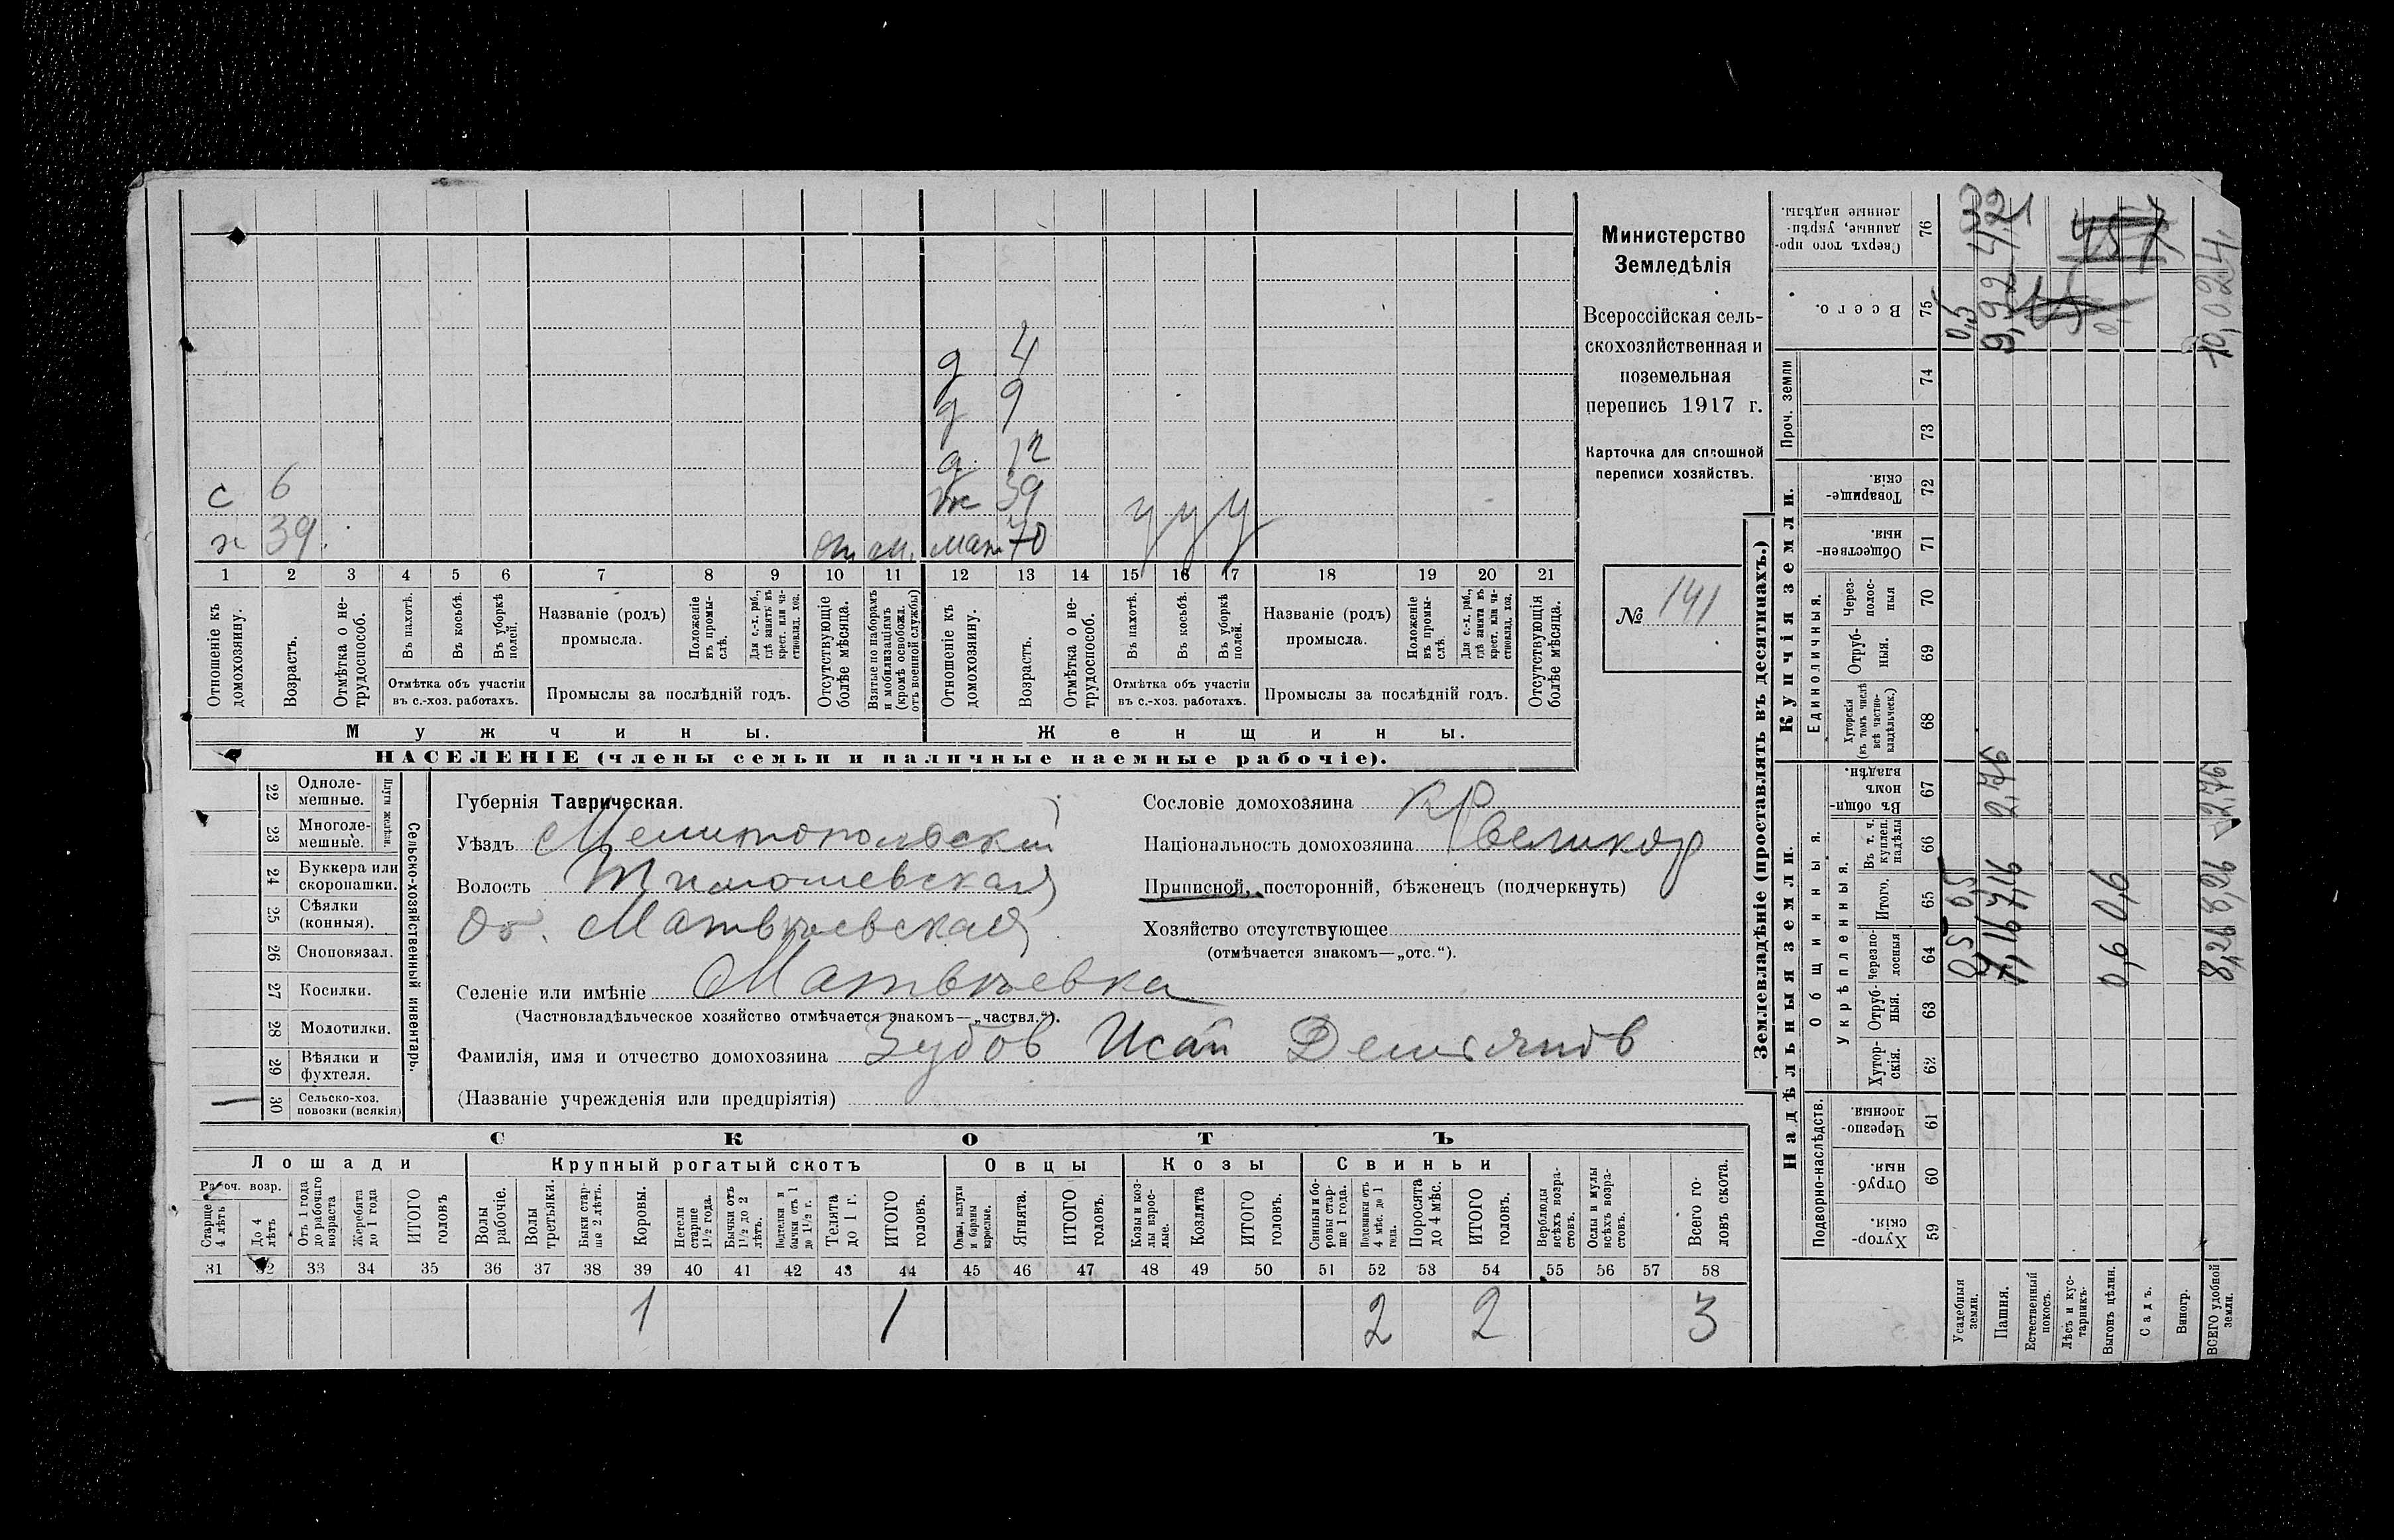 Министерство
Земледѣлія
Всероссійская сель-
скохозяйственная и
поземельная
перепись 1917 г.
Карточка для сплошной
переписи хозяйствъ.
№ 141
д 4
д 9
д 12
с 6 ж 39 у у у
х 39 от м. мат 70
1 2 3 4 5 6 7 8 9 10 11 12 13 14 15 16 17 18 19 20 21
Отношеніе къ домохозяину.
Возрастъ.
Отмѣтка о не-трудоспособ.
Въ пахотѣ.
Въ косьбѣ.
Въ уборкѣ полей.
Отмѣтка объ участіи
въ с.-хоз. работахъ.
Названіе (родъ)
промысла.
Положеніе въ промы-слѣ.
Для с.-х. раб., гдѣ занятъ въ крест. или ча-стновлад. хоз.
Промыслы за послѣдній годъ.
Отсутствующіе болѣе мѣсяца.
Взятые по наборамъ и мобилизаціямъ (кромѣ освобожд. отъ военной службы)
Отношеніе къ домохозяину.
Возрастъ.
Отмѣтка о не-трудоспособ.
Въ пахотѣ.
Въ косьбѣ.
Въ уборкѣ полей.
Отмѣтка объ участіи
въ с.-хоз. работахъ.
Названіе (родъ)
промысла.
Положеніе въ промы-слѣ.
Для с.-х. раб., гдѣ занята въ крест. или ча-стновлад. хоз.
Промыслы за послѣдній годъ.
Отсутствующія болѣе мѣсяца.
Мужчины. Женщины.
НАСЕЛЕНІЕ (члены семьи и наличные наемные рабочіе).
Сельско-хозяйственный инвентарь.
Плуги желѣзн.
22 Одноле-мешные.
23 Многоле-мешные.
24 Буккера или скоропашки.
25 Сѣялки (конныя).
26 Сноповязал.
27 Косилки.
28 Молотилки.
29 Вѣялки и фухтеля.
30 Сельско-хоз. повозки (всякія)
Губернія Таврическая.
Уѣздъ Мелитопольскій
Волость Тимошевская
Об. Матвѣевская
Селеніе или имѣніе Матвѣевка
(Частновладѣльческое хозяйство отмѣчается знакомъ—„частвл.“).
Фамилія, имя и отчество домохозяина Зубов Исай Демьянов
(Названіе учрежденія или предпріятія)
Сословіе домохозяина кр
Національность домохозяина великор
Приписной, посторонній, бѣженецъ (подчеркнуть)
Хозяйство отсутствующее
(отмѣчается знакомъ—„отс.“).
СКОТЪ
Лошади Крупный рогатый скотъ Овцы Козы Свиньи
Рабоч. возр.
Старше 4 лѣтъ
До 4 лѣтъ
Отъ 1 года до рабочаго возраста
Жеребята до 1 года
ИТОГО головъ
Волы рабочіе.
Волы третьяки.
Быки стар-ше 2 лѣтъ.
Коровы.
Нетели старше 1½ года.
Бычки отъ 1½ до 2 лѣтъ.
Подтелки и бычки отъ 1 до 1½ г.
Телята до 1 г.
ИТОГО головъ.
Овцы, валухи и бараны взрослые.
Ягнята.
ИТОГО головъ.
Козы и коз-лы взрос-лые.
Козлята
ИТОГО головъ.
Свиньи и бо-ровы стар-ше 1 года.
Подсвинки отъ 4 мѣс. до 1 года.
Поросята до 4 мѣс.
ИТОГО головъ.
Верблюды всѣхъ возра-стовъ.
Ослы и мулы всѣхъ возра-стовъ.
Всего го-ловъ скота.
31 32 33 34 35 36 37 38 39 40 41 42 43 44 45 46 47 48 49 50 51 52 53 54 55 56 57 58
1 1 2 2 3
Землевладѣніе (проставлять въ десятинахъ.)
Надѣльныя земли.
Купчія земли.
Проч. земли
Подворно-наслѣдств.
Общинныя.
Укрѣпленныя.
Единоличныя.
Хутор-скія. 59
Отруб-ныя. 60
Черезпо-лосныя. 61
Хутор-скія. 62
Отруб-ныя. 63
Черезпо-лосныя 64
Итого. 65
Въ т. ч. куплен. надѣлы 66
Въ общи-номъ владѣн. 67
Хуторскія (въ томъ числѣ всѣ частно-владѣльческ.) 68
Отруб-ныя. 69
Через-полос-ныя 70
Обществен-ныя. 71
Товарище-скія. 72
73
74
Всего. 75
Сверхъ того про-данные, укрѣп-ленные надѣлы. 76
Усадебныя земли. 0,5 0,5 0,5
Пашня. 7,16 7,16 2,76 9,92 4,21
Естественный покосъ.
Лѣсъ и кус-тарникъ.
Выгонъ цѣлин. 0,6 0,6
Садъ.
Виногр.
ВСЕГО удобной земли. 8,26 8,26 2,76